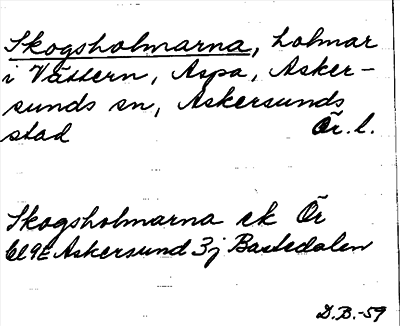 Skogsholmarna, holmar
i Vättern, Aspa, Asker-
sunds sn, Askersunds
stad Ör. l.
Skogsholmarna ek Ör
Askersund 3j Bastedalen
D.B.-59